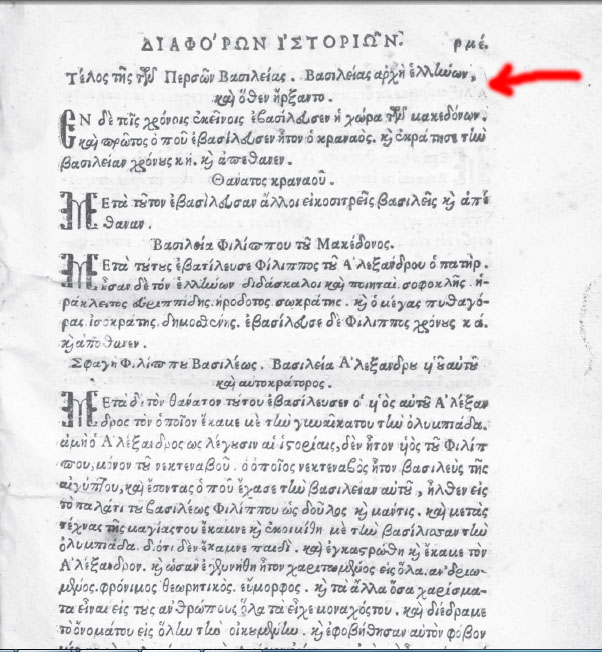 ΔΙΑΦΌΡΩΝ ἹΣΤΟΡΙΩ͂Ν. ρμέ.
Τέλος τῆς τῶν Περσῶν Βασιλείας. Βασιλείας ἀρχὴ ἑλλήνων,
καὶ ὅθεν ἤρξαντο.
ΕΝ δὲ τοῖς χρόνοις ἐκείνοις ἐβασίλευσεν ἡ χώρα τῶν μακεδόνων.
καὶ πρῶτος ὁ ποῦ ἐβασίλευσεν ἦτον ὁ κραναὸς. καὶ ἐκράτησε τὴν
βασιλείαν χρόνους κή. καὶ ἀπέθανεν.
Θάνατος κραναοῦ.
ΜΕτὰ τοῦτον ἐβασίλευσαν ἄλλοι εἰκοσιτρεῖς βασιλεῖς καὶ ἀπέ
θαναν.
Βασιλεία Φιλίππου τοῦ Μακέδονος.
ΜΕτὰ τούτους ἐβατίλευσε Φίλιππος τοῦ Ἀλεξάνδρου ὁ πατήρ.
ἦσαν δὲ τὸν ἑλλήνων διδάσκαλοι καὶ ποιηταὶ. σοφοκλῆς. ἡ-
ράκλειτος εὐριππίδης. ἡρόδοτος σωκράτης. καὶ ὁ μέγας πυθαγό-
ρας. ἰσοκράτης. δημοσθένης. ἐβασίλευσε δὲ Φίλιππος χρόνους κά.
καὶ ἀπόθανεν.
Σφαγὴ Φιλίππου Βασιλέως. Βασιλεία Ἀλεξάνδρου υἱοῦ αὐτοῦ
καὶ αὐτοκράτορος.
ΜΕτὰ δὲ τὸν θάνατον τούτου ἐβασίλευσεν ὁ υἱὸς αὐτοῦ Ἀλέξαν
δρος τὸν ὁποῖον ἔκαμε μὲ τὴν γυναῖκατου τὴν ὀλυμπιάδα.
ἀμὴ ὁ Ἀλέξανδρος ὡς λέγουσιν αἱ ἱστορίαις, δὲν ἦτον υἱὸς τοῦ Φιλίπ
που, μόνον τοῦ νεκτεναβοῦ. ὁ ὁποῖος νεκτεναβὸς ἦτον βασιλεὺς τῆς
αἰγύπτου, καὶ ἔσοντας ὁ ποῦ ἔχασε τὴν βασιλείαν αὐτοῦ, ἦλθεν εἰς
τὸ παλάτι τοῦ βασιλέως Φιλίππου ὡς δοῦλος καὶ μάντις. καὶ μετὰς
τέχνας τῆς μαγίαςτου ἔκαμνε καὶ ἐκοιμίθη μὲ τὴν βασίλισσαν τὴν
ὀλυμπιάδα. διότι δὲν ἔκαμνε παιδὶ. καὶ ἐγκαστρώθη καὶ ἔκαμε τὸν
Ἀλέξανδρον. καὶ ὡσὰν ἐγεννήθη ἦτον χαριτωμένος εἰς ὅλα. ἀνδρειω-
μένος. φρόνιμος θεωρητικὸς. εὔμορφος. καὶ τὰ ἄλλα ὅσα χαρίσμα-
τα εἶναι εἰς τους ἀνθρώπους ὅλα τὰ εἶχε μοναχόςτου. καὶ διέδραμε
τὸ ὄνομάτου εἰς ὅλην τὴν οἰκουμένην. καὶ ἐφοβήθησαν αὐτὸν φόβον